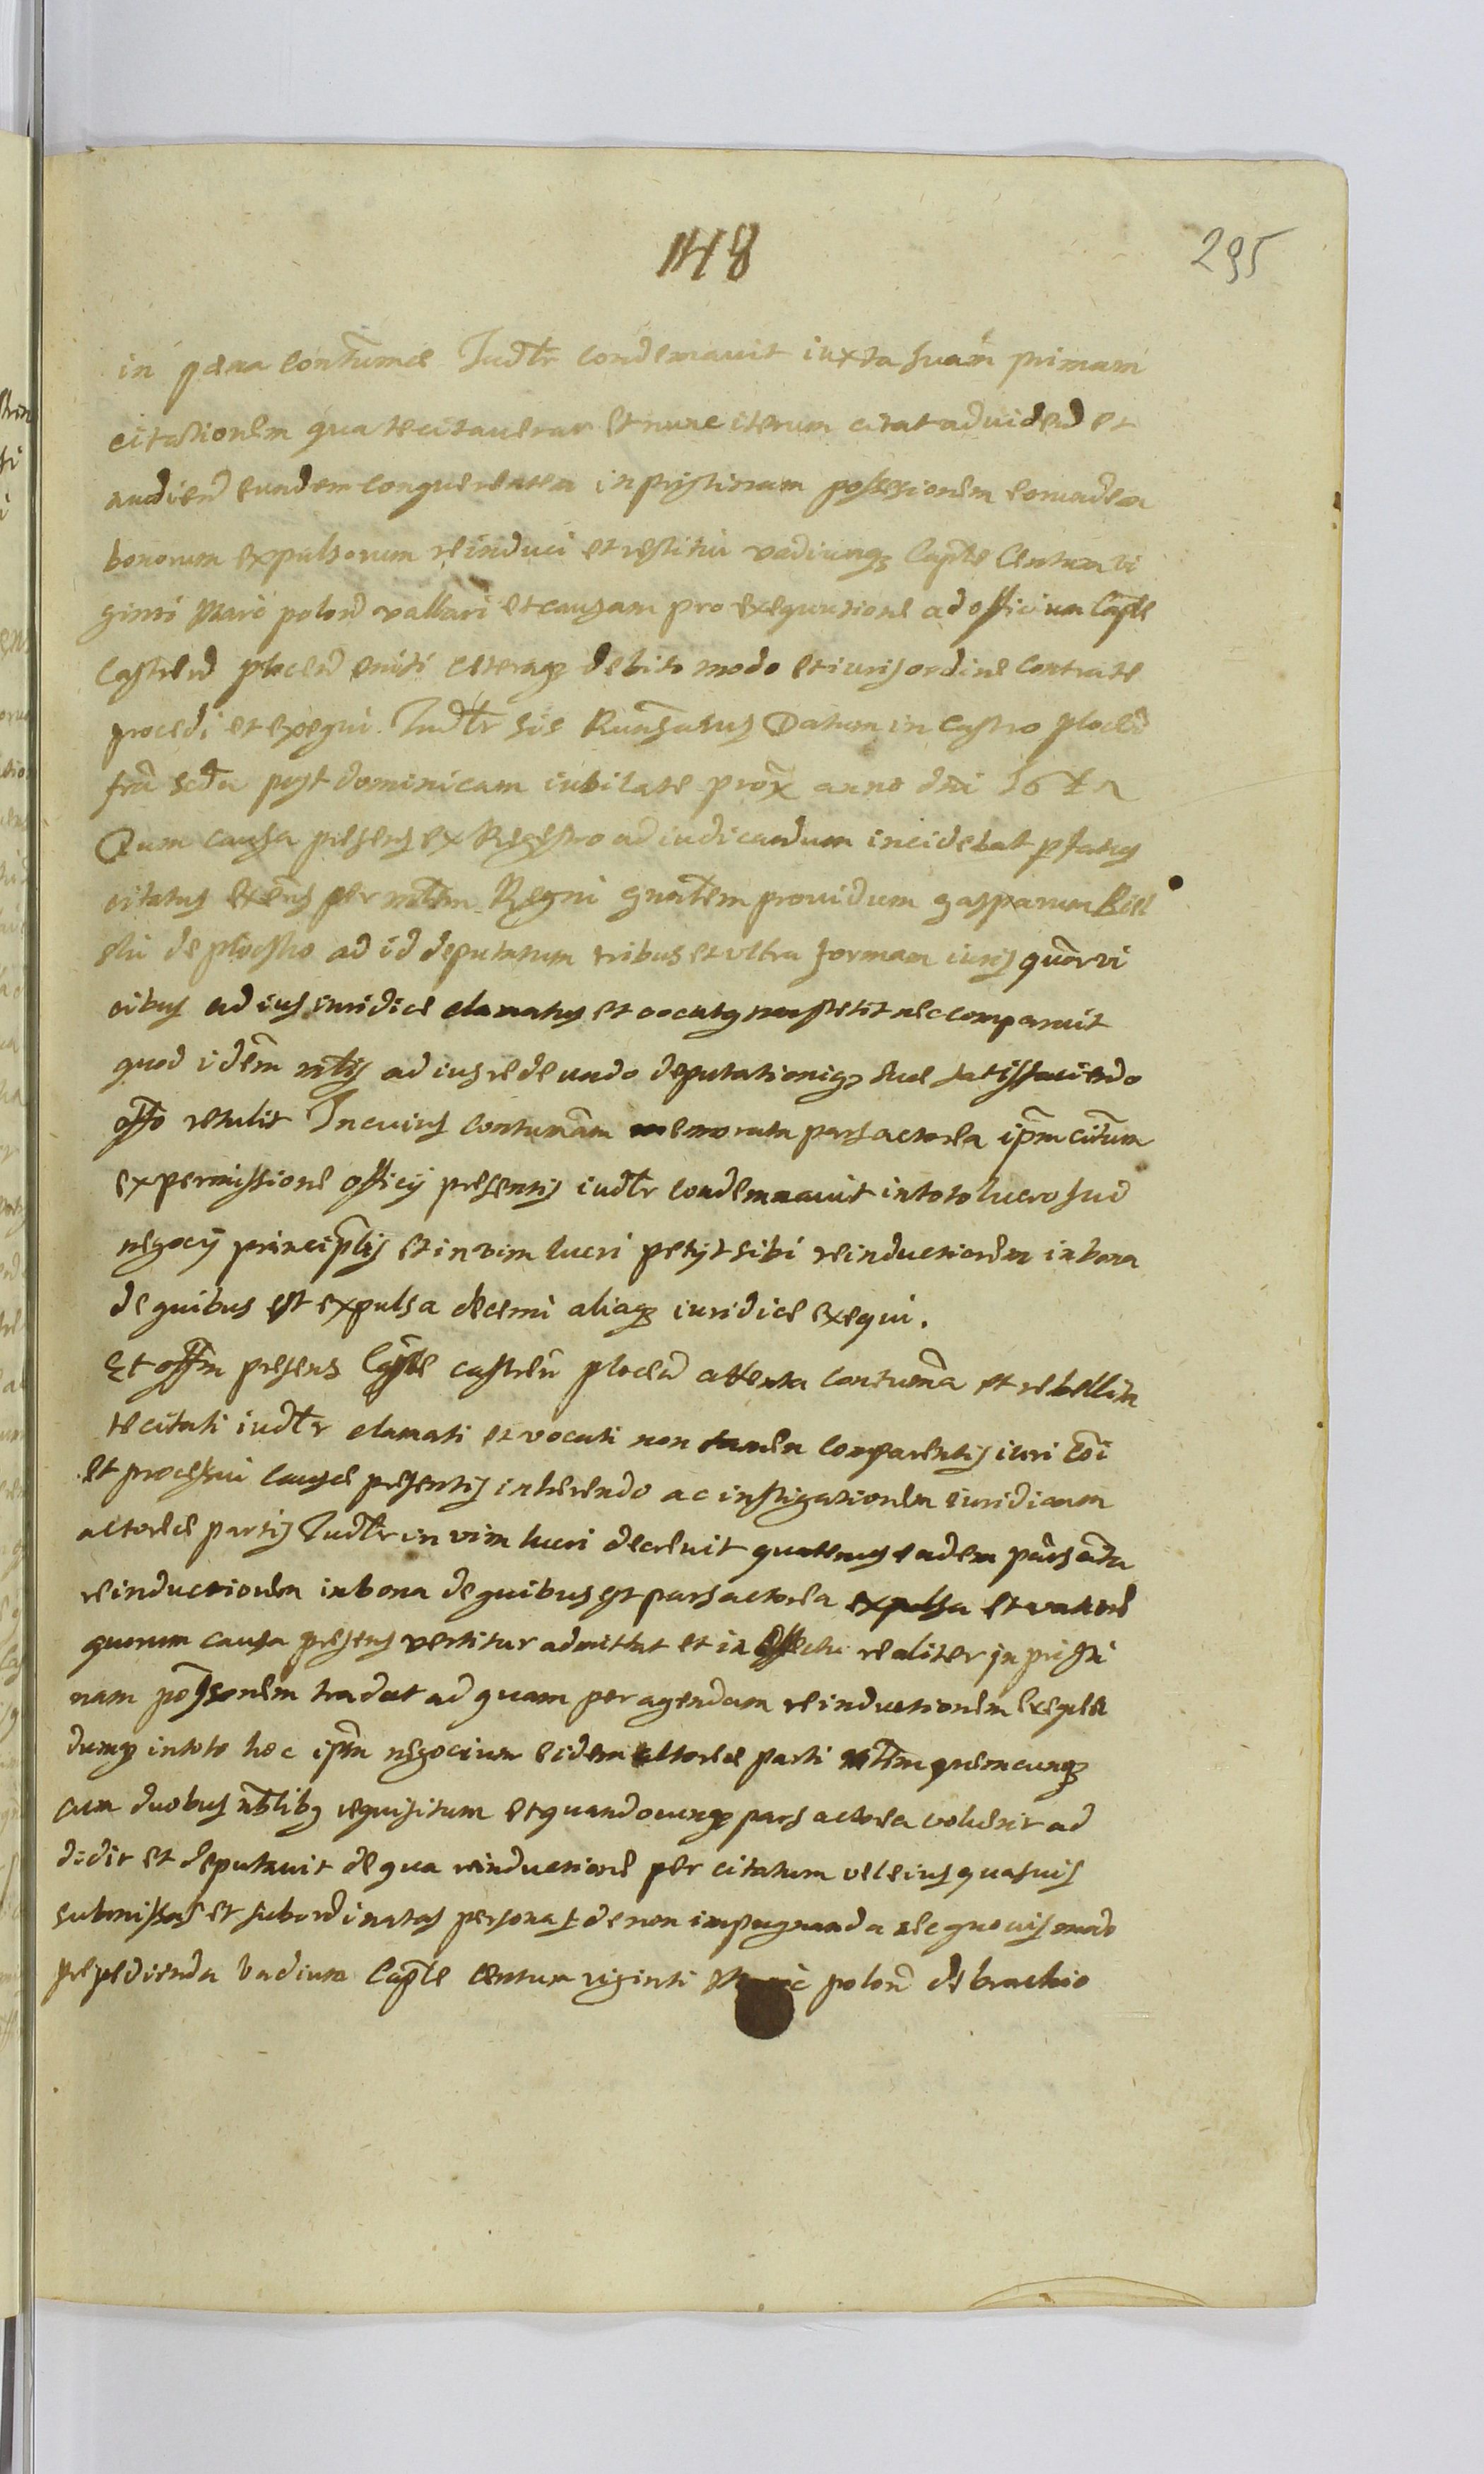 148
295
in pæna contumæ Judtr condemnavit iuxta suam primam
citationem qua te citaverar et nunc iterum citat ad vidend et
audiend eundem conquerentem in pristinam possessionem eorundem
bonorum expulsorum reinduci et restitui vadiumq Captle Centum vi
ginti Marc polon vallari et causam pro exequutione ad officium Captle
Castren plocen emitti ceteraq debito modo et iuris ordine contra te
procedi et exequi Judtr sis Datum in Castro plocen
fria scda post dominicam iubilate prox anno dni
Dum causa presens ex Regestro ad iudicandum incidebat pfatus
citatus per mtem Regni gnatem providum gasparum Biel
ski de plocsko ad id deputatum tribus et ultra formam iuris quor vi
cibus ad ius iuridice clamatus et vocatus non stetit nec comparuit
quod idem mtis ad ius redeundo deputationiq suæ satisfaciendo
offo retulit In cuius contumam memorata pars actorea ipm citum
ex permissione officij presentis iudtr condemnavit in toto lucro sui
negocij principlis et in vim lucri petijt sibi reinductionem in bona
de quibus est expulsa decerni aliaq iuridice exequi.
Et offm presens Captle castren plocen attenta contuma et rebellia
te citati iudtr clamati et vocati non tamen comparentis iuri coi
et processui causæ presentis inherendo ac instigationem iuridicam
actoreæ partis Judtr in vim lucri decrevit quatenus eadem pars
reinductionem in bona de quibus est pars actorea expulsa et ratione
quorum causa presens vertitur admittat et in effectu realiter in pristi
nam possonem tradat ad quam peragendam reinductionem exequen
dumq in toto hoc ipm negocium eidem actoreæ parti mtem quemcunq
cum duobus nblibq requisitum et quandocunq pars actorea voluerit ad
didit et deputavit de qua reinductione per citatum vel eius quasvis
submissas et subordinatas personas de non impugnanda nec quovis modo
prepedienda vadium Captle centum viginti Marc polon de brachio